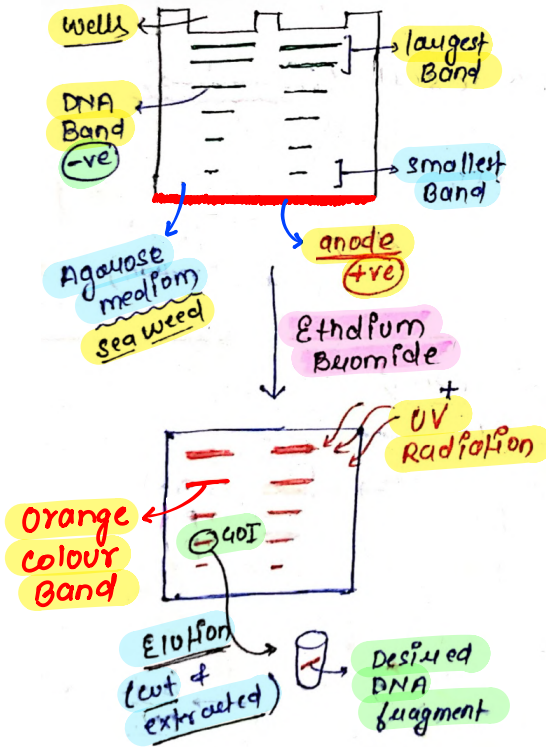 wells
largest
Band
DNA
Band
-ve
smallest
Band
Agarose
medium
sea weed
anode
+ve
Ethdium
Bromide
+
UV
Radiation
Orange
colour
Band
GOI
Elution
(cut &
extracted)
Desired
DNA
fragment